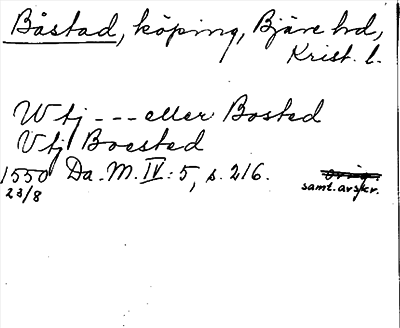 Båstad, köping, Bjäre hd,
Krist. l.
W tj --- eller Bosted
V tj Boested
1550 Da. M. IV: 5, s. 216. orig.
23/8 samt. avskr.